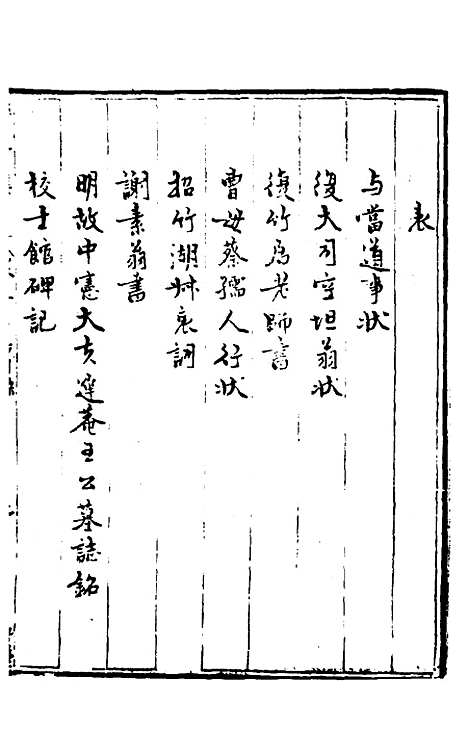 表
与當道事狀
復大司空坦翁狀
復竹為老師書
曹母蔡孺人行狀
招竹湖艸哀詞
謝素翁書
明故中憲大夫遂菴王公墓誌銘
校士館碑記